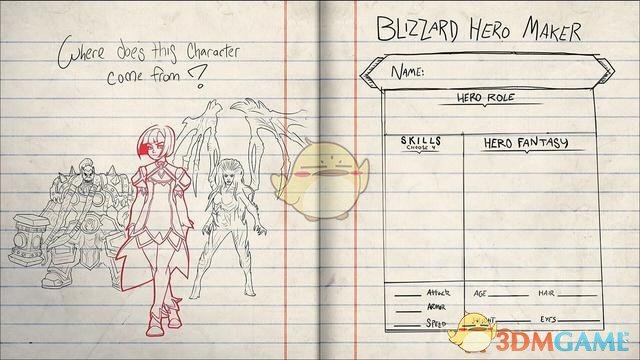 Where does this Character
come from?
BLIZZARD HERO MAKER
NAME:
HERO ROLE
SKILLS
CHOOSE 4
HERO FANTASY
ATTACK
ARMOR
SPEED
AGE
HAIR
EYES
3DMGAME